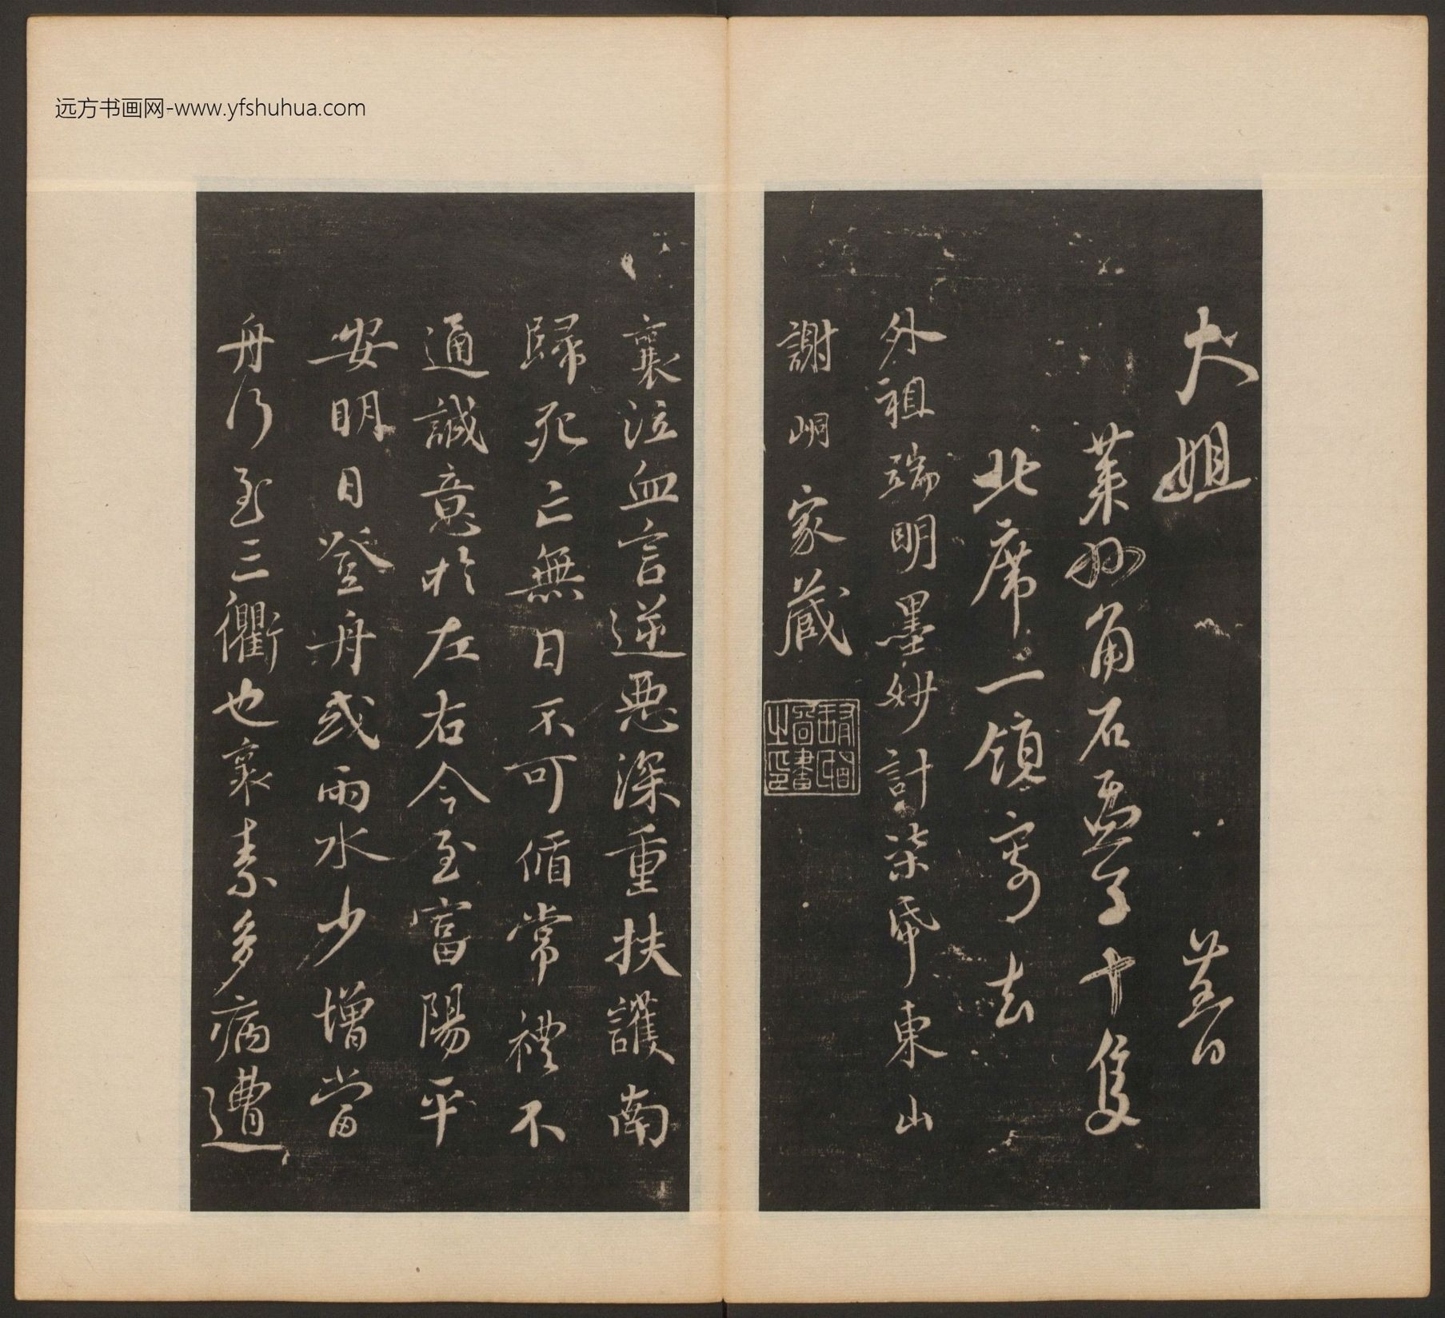 远方书画网-www.yfshuhua.com
大姐
角石盃子十隻
北席一領寄去
外祖端明墨妙計柒帋東山
謝峒家藏
襄泣血言逆惡深重扶護南
歸死亡無日不可循常禮不
通誠意於左右今至富陽平
安明日登舟或雨水少增當
舟行至三衢也襄素多病遭